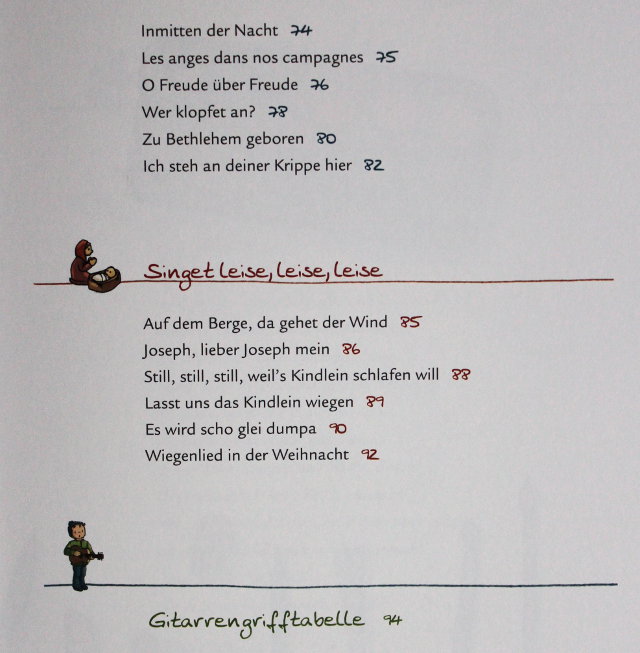 Inmitten der Nacht 74
Les anges dans nos campagnes 75
O Freude über Freude 76
Wer klopfet an? 78
Zu Bethlehem geboren 80
Ich steh an deiner Krippe hier 82
Singet leise, leise, leise
Auf dem Berge, da gehet der Wind 85
Joseph, lieber Joseph mein 86
Still, still, still, weil's Kindlein schlafen will 88
Lasst uns das Kindlein wiegen 89
Es wird scho glei dumpa 90
Wiegenlied in der Weihnacht 92
Gitarrengrifftabelle 94